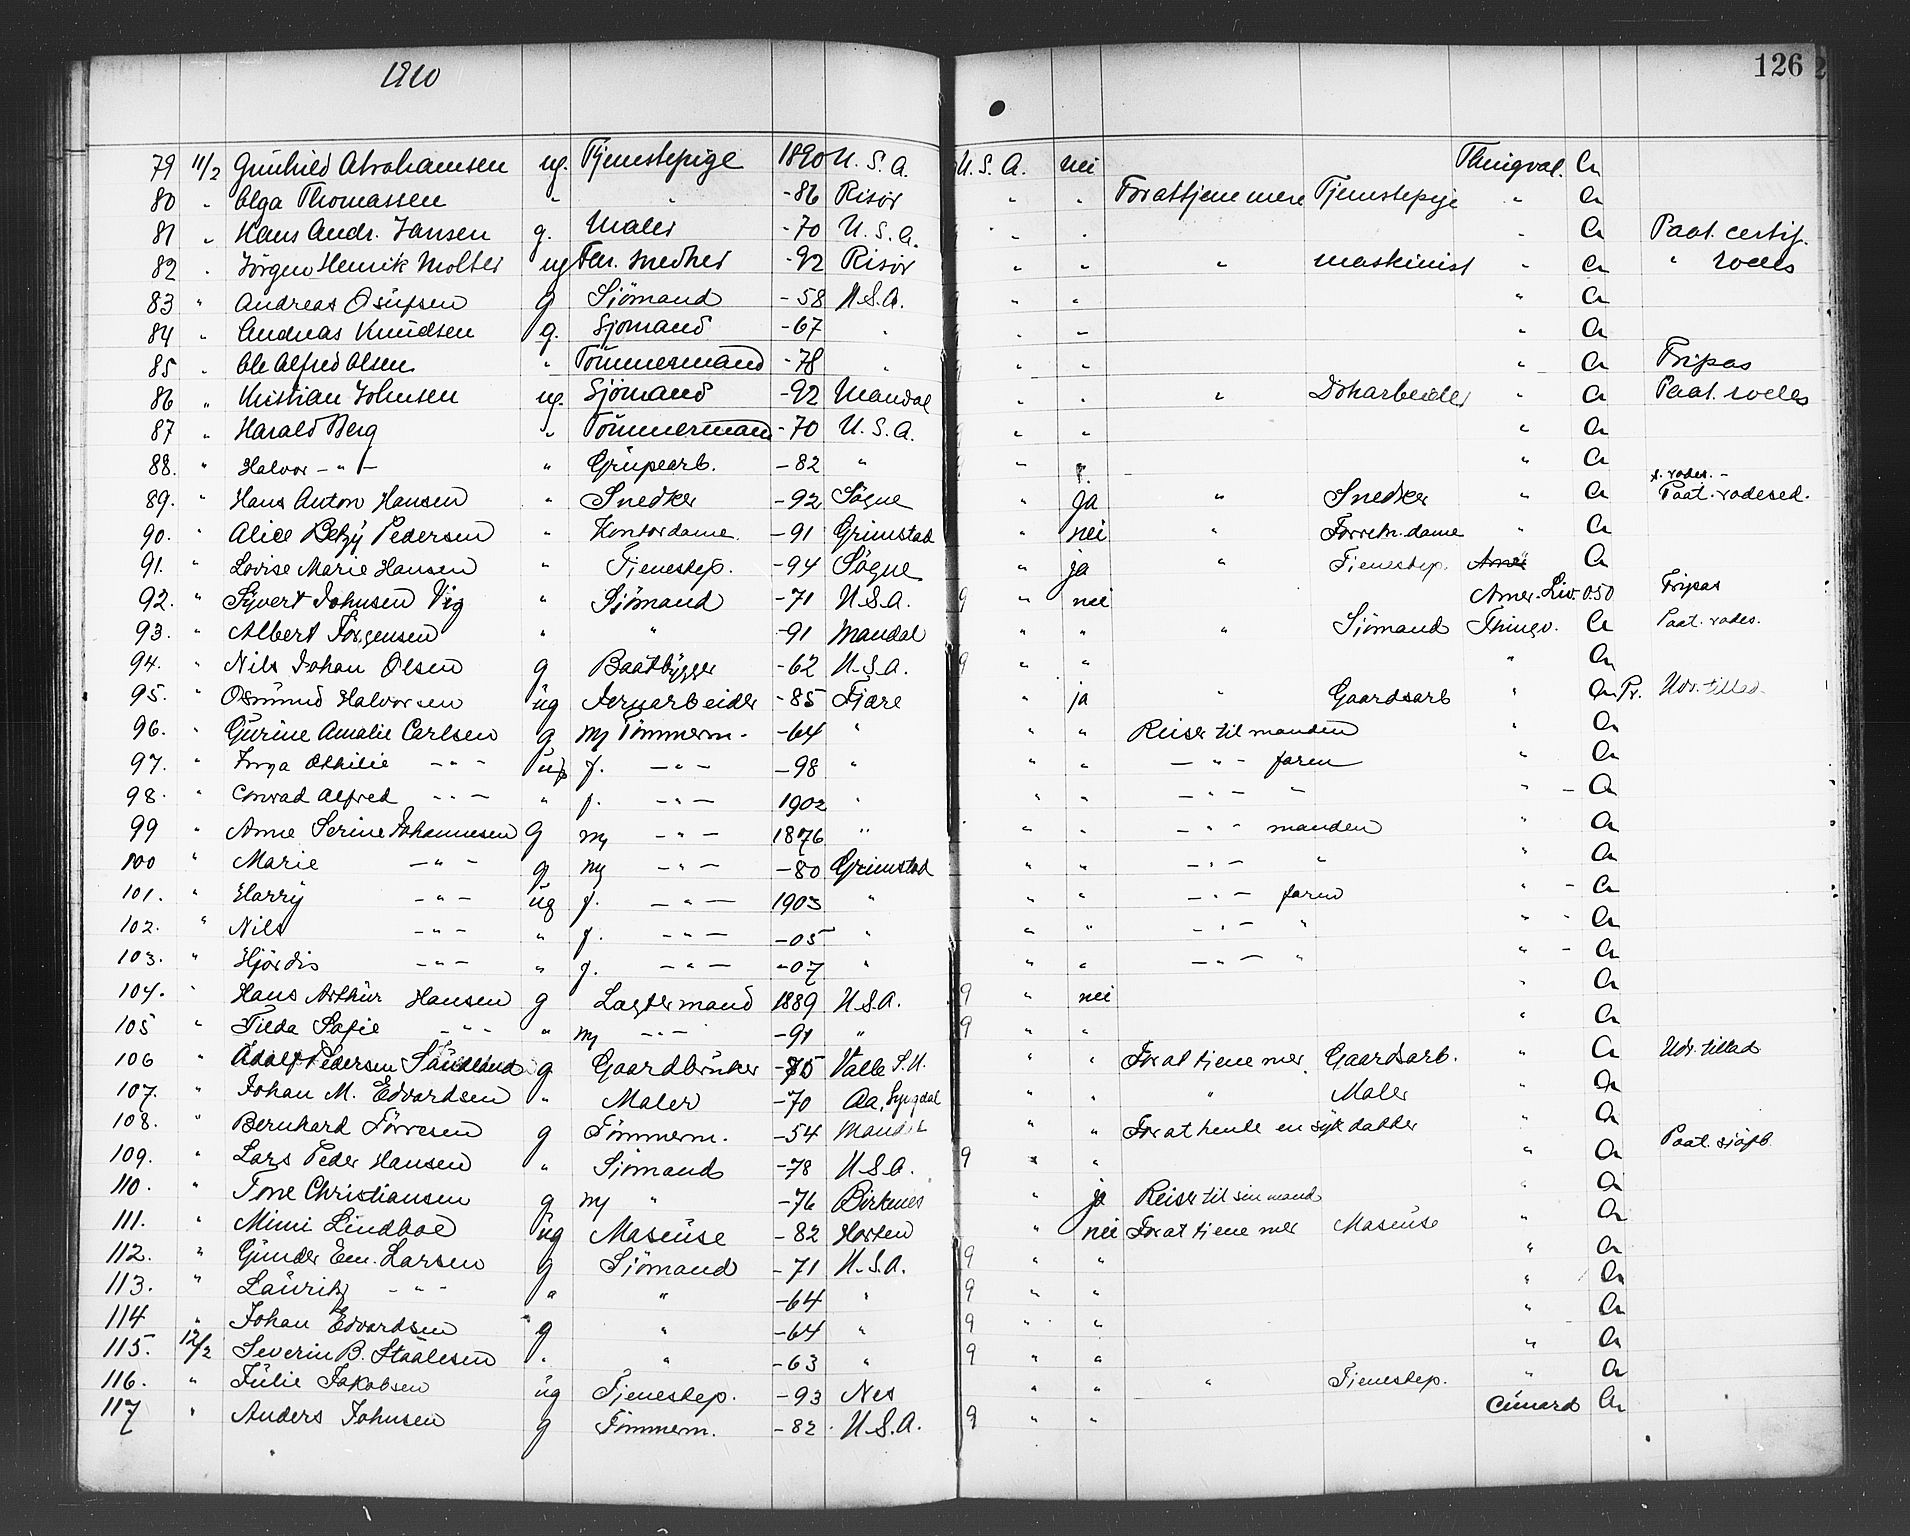 1910
126
79 11/2 Gunhild Abrahamsen ug. Tjenestepige 1890 U. S. A. U. S. A. nei Thingval. Cr
80 " Olga Thomassen " " -86 Risør " " For at tjene mere Tjenestepige " Cr
81 " Hans Andr. Jansen g. Maler -70 U. S. A. " " " Cr Paat. certif.
82 " Jørgen Henrik Molter ug Skr. snedker -92 Risør " " " maskinist " Cr " rodes
83 " Andreas Osufsen g Sjömand -58 U.S.A. " " " Cr
84 " Andreas Knudsen g. Sjömand -67 " " " " Cr
85 " Ole Alfred Olsen " Tömmermand -78 " " " " Cr Fripas
86 " Kristian Johnsen ug. Sjömand -92 Mandal " " " Dokarbeider " Cr Paat. rodes
87 " Harald Berg " Tömmermand -70 U. S. A. " " " Cr
88. " Halvor - " - " Grubearb. -82 " " " " Cr
89. " Hans Anton Hansen " Snedker -92 Søgne " ja " Snedker " Cr Paat. rodesed.
90. " Alice Betzy Pedersen " Kontordame -91 Grimstad " nei " Forretn. dame " Cr
91. " Lovise Marie Hansen " Tjenestep. -94 Søgne " ja " Tjenestep. Cr
92. " Syvert Johnsen Vig " Sjömand -71 U.S.A. 9 " nei Amer. Liv. 050 Fripas
93. " Albert Jørgensen " " -91 Mandal " " " Sjömand Thingv. Cr Paat. rodes.
94. " Nils Johan Olsen g Baatbygger -62 U.S.A. 9 " " " Cr
95. " Osmund Halvorsen ug Jernarbeider -85 Fjære " ja " Gaardsarb " Cr Pr. Udv. tillad.
96. " Gurine Amalie Carlsen g m/ Tömmerm. -64 " " " Reiser til manden " Cr
97. " Inga Othilie - " - ug f. - " - -98 " " " - " - faren " Cr
98. " Conrad Alfred - " - " f. - " - 1902 " " " - " - " " - Cr
99 " Anne Serine Johannesen g m/ - " - 1876 " " " - " - manden " Cr
100 " Marie - " - g m/ - " - -80 Grimstad " " - " - " " Cr
101. " Harry - " - ug f. - " - 1903 " " " - " - faren " - Cr
102. " Nils - " - " f. - " - -05 " " " - " - " " - Cr
103. " Hjördis - " - " f. - " - -07 " " " - " - " " - Cr
104. " Hans Arthur Hansen g Lagtermand 1889 U.S.A. 9 " nei " Cr
105 " Tilda Sofie - " - " m/ - " - -91 " 9 " " " Cr
106 " Adolf Pedersen Sandland g Gaardbruker -75 Valle S.U. " " For at tjene mer Gaardsarb. " Cr Udv. tillad
107. " Johan M. Edvardsen " Maler -70 Aa, Lyngdal " " " Maler " Cr
108. " Bernhard Törresen g Tömmerm. -54 Mandal " " For at hente en syk datter " Cr
109. " Lars Peder Hansen " Sjömand -78 U.S.A. 9 " " " Cr Paat. sjöfb.
110. " Tone Christiansen g m/ " -76 Birkenes " ja Reiser til sin mand " Cr
111. " Mimi Lindboe ug Maseuse -82 Horten " nei For at tjene mer Maseuse " Cr
112. " Gunder Em. Larsen g Sjömand -71 U.S.A. 9 " " " Cr
113. " Lauritz - " - " " -64 " 9 " " " Cr
114 " Johan Edvardsen g " -64 " 9 " " " Cr
115. 12/2 Severin B. Staalesen " " -63 " 9 " " " Cr
116. " Julie Jakobsen ug Tjenestep. -93 Nes " " " Tjenestep. " Cr
117 " Anders Johnsen g Tömmerm. -82 U.S.A. 9 " " Cunard Cr